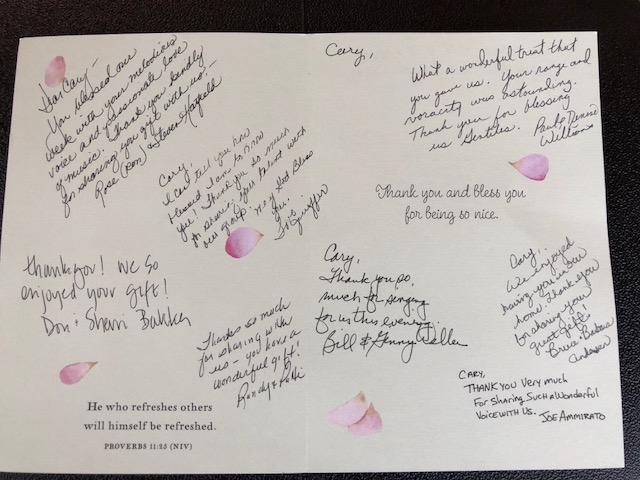 Dear Cary –
You blessed our
week with your melodious
voice and passionate love
of music. Thank you kindly
for sharing your gift with us. –
Rose (Ron) & Steven
Cary,
I can't tell you how
blessed I am to know
you! Thank you so much
for sharing your talent with
our group. May God bless
you.
thank you! We so
enjoyed your gift!
Don & Sherri Bakker
Thanks so much
for sharing with
us – you have a
wonderful gift!
Randy &
He who refreshes others
will himself be refreshed.
PROVERBS 11:25 (NIV)
Cary,
What a wonderful treat that
you gave us. Your range and
voracity was astounding.
Thank you for blessing
us Gentiles. Paul & Denise
Williams
Thank you and bless you
for being so nice.
Cary,
Thank you so
much for singing
for us this evening.
Bill & Ginny Weller
Cary,
We enjoyed
having you in our
home. Thank you
for sharing your
great gift.
Bruce & Barbara
Anderson
CARY,
THANK YOU Very much
For Sharing Such a Wonderful
Voice with US. JOE AMMIRATO